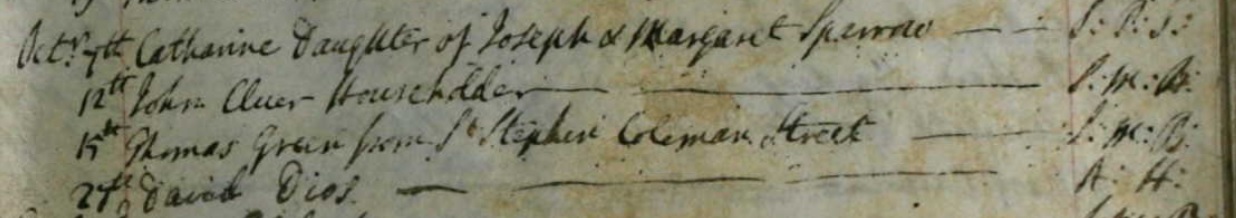 Octr. 7th Catharine Daughter of Joseph & Margaret Sparrow — — S: P: S:
12th John Cluer Househodder — — S: M: B:
15th Thomas Green from St Stephen Coleman Street — — S: M: B:
27th David Dios — — — A: H: